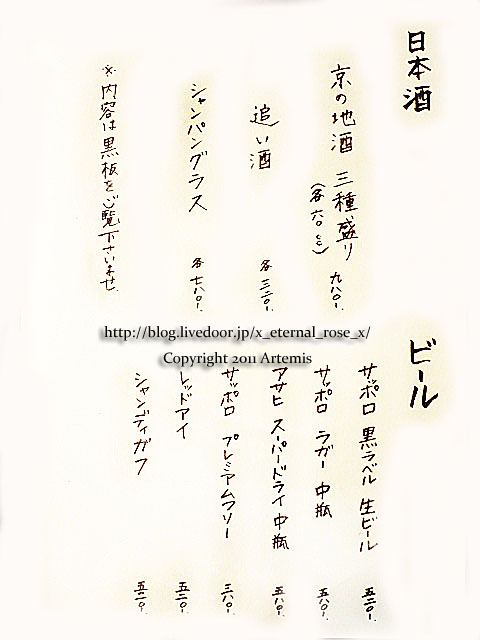 日本酒
京の地酒 三種盛り 九八〇-.
(各六〇cc)
追い酒 各三二〇-.
シャンパングラス 各七八〇-.
※内容は黒板をご覧下さいませ.
ビール
サッポロ 黒ラベル 生ビール 五二〇-.
サッポロ ラガー 中瓶 五八〇-.
アサヒ スーパードライ 中瓶 五八〇-.
サッポロ プレミアムフリー 三八〇-.
レッドアイ 五二〇-.
シャンディガフ 五二〇-.
http://blog.livedoor.jp/x_eternal_rose_x/
Copyright 2011 Artemis